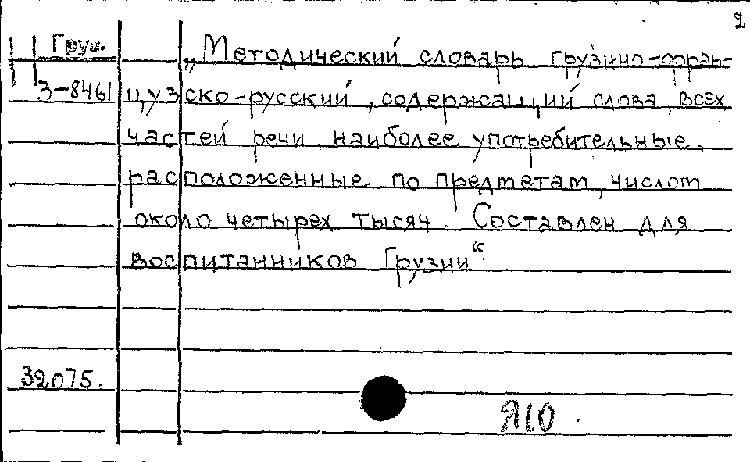 2
Груз. „Методический словарь грузино-фран-
3-8461 цузско-русский, содержащий слова всех
частей речи наиболее употребительные,
расположенные по предметам, числом
около четырех тысяч. Составлен для
воспитанников Грузии“
32075.
Я10.